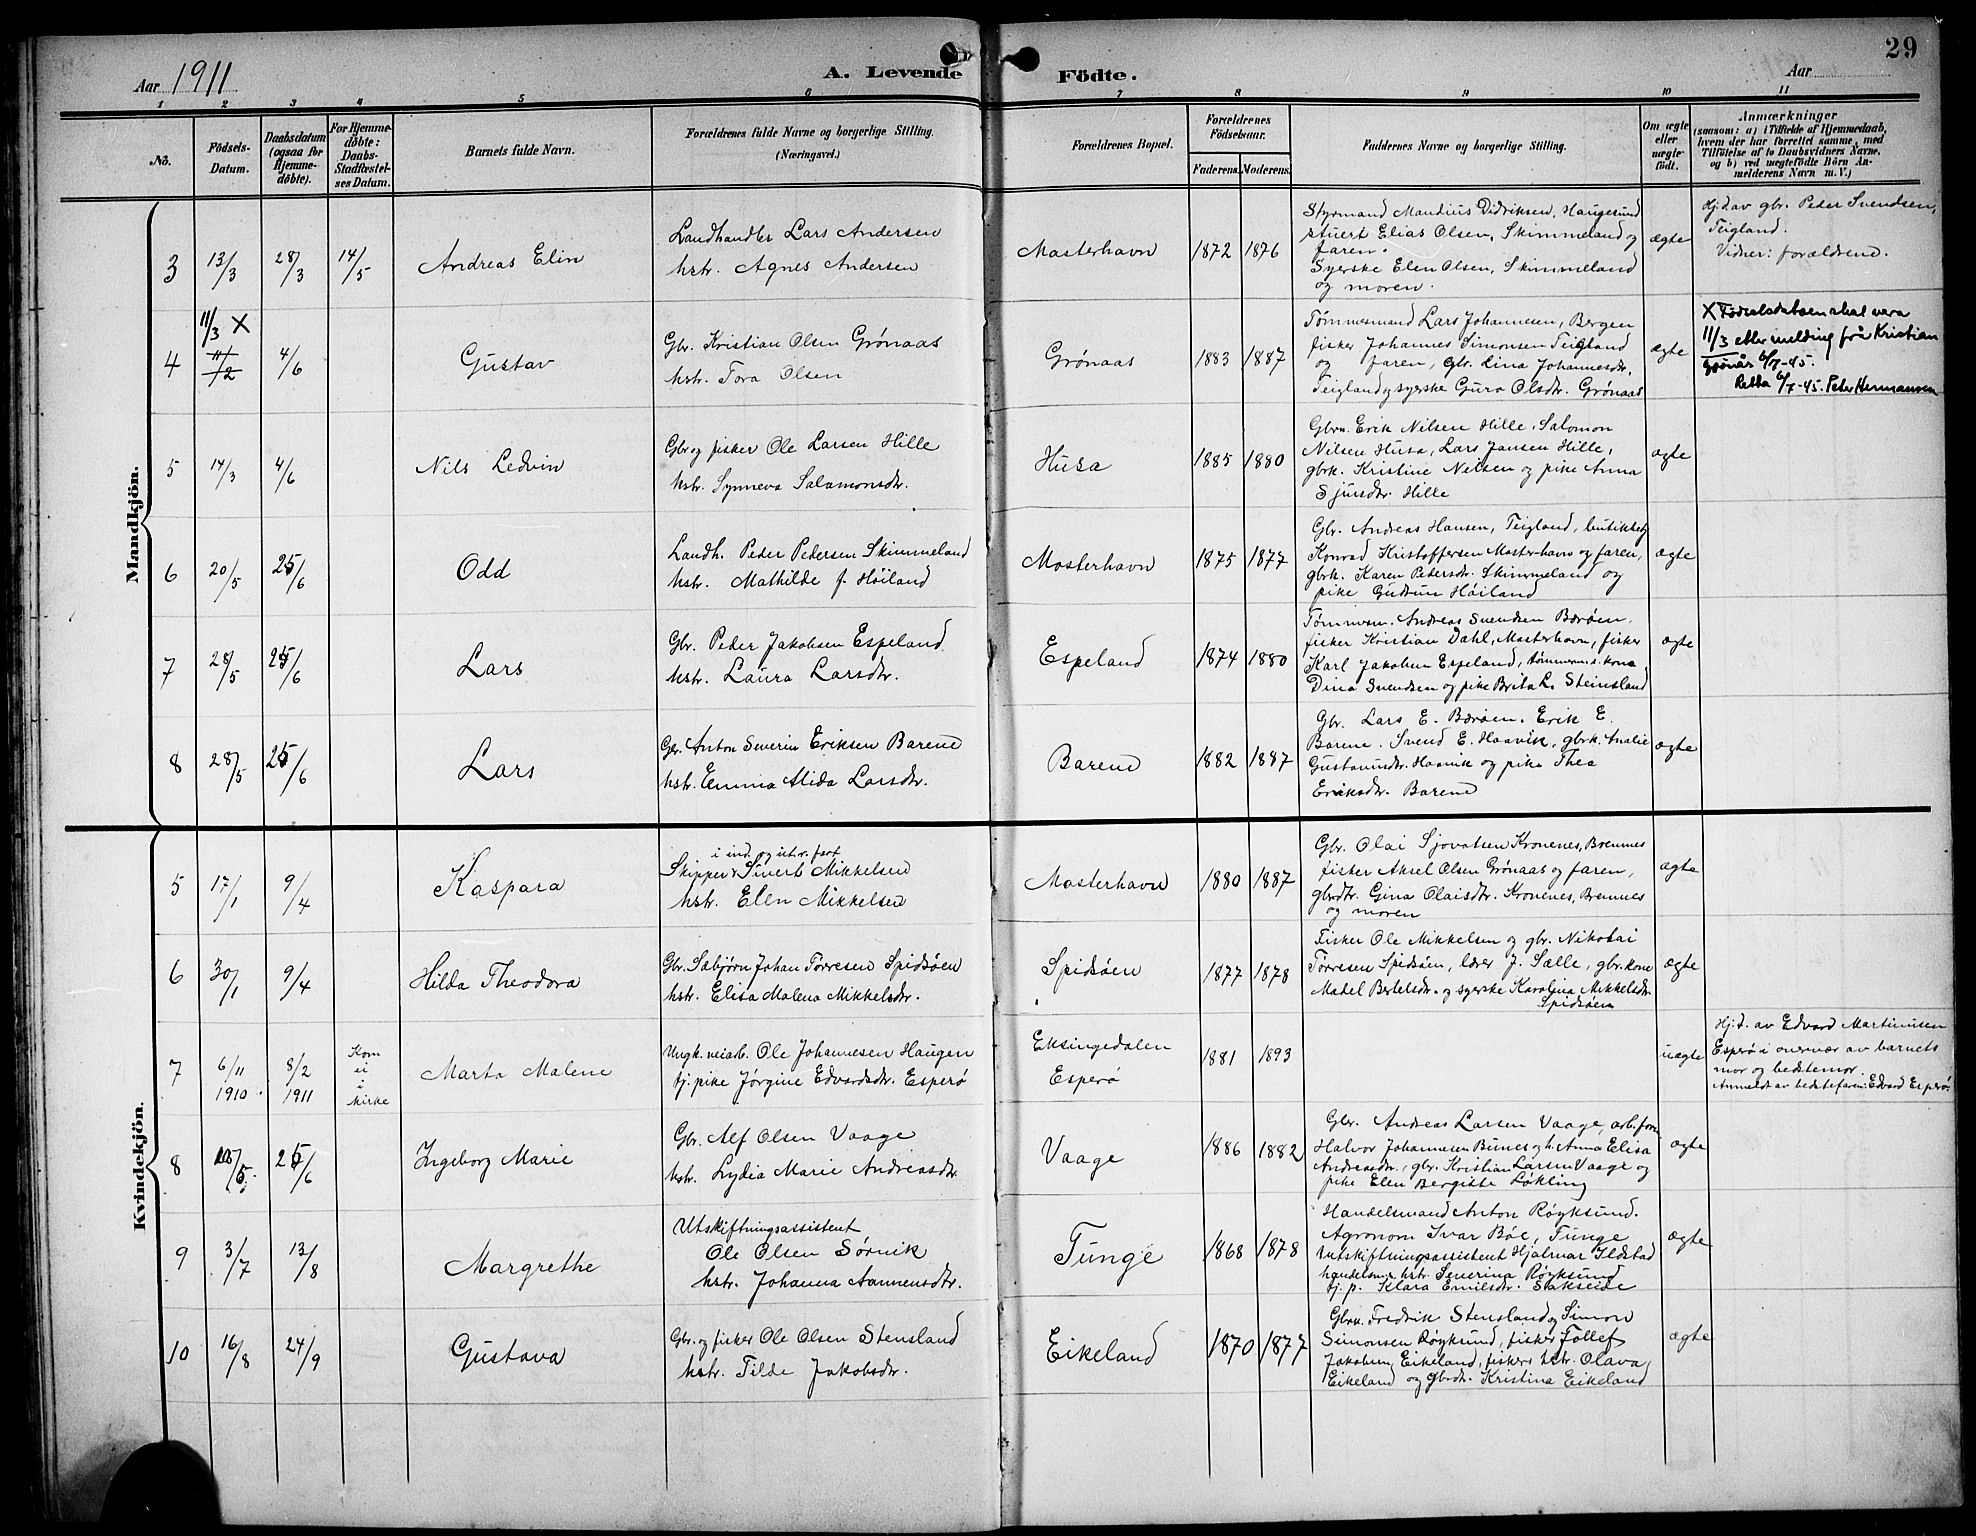 29
Aar 1911
A. Levende Födte.
Aar
1 2 3 4 5 6 7 8 9 10 11
No.
Födsels-
Datum.
Daabsdatum
(ogsaa for
Hjemme-
döbte).
For Hjemme-
döbte:
Daabs-
Stadfæstel-
ses Datum.
Barnets fulde Navn.
Forældrenes fulde Navne og borgerlige Stilling.
(Næringsvei.)
Forældrenes Bopæl.
Forældrenes
Födselsaar.
Faderens. Moderens.
Faddernes Navne og borgerlige Stilling.
Om ægte
eller
uægte
födt.
Anmærkninger
(saasom: a) i Tilfælde af Hjemmedaab,
hvem der har forrettet samme, med
Tilföielse af to Daabsvidners Navne,
og b) ved uægtefödte Börn An-
melderens Navn m. V.)
Mandkjön.
3
13/3
28/3
14/5
Andreas Elin
Landhandler Lars Andersen
hstr. Agnes Andersen
Mosterhavn
1872
1876
Styrmand Mandius Didriksen, Haugesund
stuert Elias Olsen, Skimmeland og
faren.
Syerske Elen Olsen, Skimmeland
og moren.
ægte
Hj.d. av gbr. Peder Svendsen,
Teigland.
Vidner: forældrene.
4
11/3 X
11/2
4/6
Gustav
Gbr. Kristian Olsen Grønaas
hstr. Tora Olsen
Grønaas
1883
1887
Tømmermand Lars Johannesen, Bergen
fisker Johannes Simonsen Teigland
og faren, gbr. Lina Johannesdr.
Teigland og syerske Guro Olsdtr. Grønaas
ægte
X Fødselsdatoen skal vera
11/3 etter melding frå Kristian
Grønås 6/7-45.
Retta 6/7-45. Peter Hermansen
5
14/3
4/6
Nils Ledvin
Gbr og fisker Ole Larsen Hille
hstr. Synneva Salamonsdtr.
Husa
1885
1880
Gbrn. Erik Nilsen Hille, Salomon
Nilsen Husa, Lars Jansen Hille,
gbrk. Kristine Nelsen og pike Anna
Sjursdtr. Hille
ægte
6
20/5
25/6
Odd
Landh. Peder Pedersen Skimmeland
hstr. Mathilde f. Høiland
Mosterhavn
1875
1877
Gbr. Andreas Hansen, Teigland, butikkbetj
Konrad Kristoffersen Mosterhavn og faren,
gbrk. Karen Petersdtr. Skimmeland og
pike Gudrun Høiland
ægte
7
28/5
25/6
Lars
Gbr. Peder Jakobsen Espeland
hstr. Laura Larsdtr.
Espeland
1874
1880
Tømmerm. Andreas Svendsen Bærøen,
fisker Kristian Dahl, Mosterhavn, fisker
Karl Jakobsen Espeland, tømmerm.s kona
Dina Svendsen og pike Brita L. Steinsland
ægte
8
28/5
25/6
Lars
Gbr. Anton Severin Eriksen Barene
hstr. Emma Alida Larsdtr.
Barene
1882
1887
Gbr. Lars E. Bærøen, Erik E.
Barene, Svend E. Haavik, gbrk. Amalie
Gustavusdtr. Haavik og pike Thea
Eriksdtr. Barene
ægte
Kvindekjön.
5
17/1
9/4
Kaspara
i ind. og utr. fart
Skipper Sivert Mikkelsen
hstr. Elen Mikkelsen
Mosterhavn
1880
1887
Gbr. Olai Sjovatsen Kronenes, Bremnes
fisker Aksel Olsen Grønaas og faren,
gbrdtr. Gina Olaisdtr. Kronenes, Bremnes
og moren
ægte
6
30/1
9/4
Hilda Theodora
Gbr. Sæbjørn Johan Tørresen Spidsøen
hstr. Elisa Malena Mikkelsdtr.
Spidsøen
1877
1878
Fisker Ole Mikkelsen og gbr. Nikolai
Tørresen Spidsøen, lærer J. Salle, gbr.kone
Madel Bertelsdtr. og syerske Karolina Mikkelsdtr.
Spidsøen
ægte
7
6/11
1910
8/2
1911
Kom
ei
i
kirke
Marta Malene
Ungk. veiarb. Ole Johannesen Haugen
tj. pike Jørgine Edvardsdtr. Esperø
Eksingedalen
Esperø
1881
1893
uægte
Hj.d. av Edvard Martinusen
Esperø i overvær av barnets
mor og bedstemor.
Anmeldt av bedstefaren: Edvard Esperø.
8
/5
25/6
Ingeborg Marie
Gbr. Alf Olsen Vaage
hstr. Lydia Marie Andreasdtr
Vaage
1886
1882
Gbr. Andreas Larsen Vaage, arb.form.
Halvor Johannesen Bunes og h. Anna Elisa
Andreasdtr., gbr. Kristian Larsen Vaage og
pike Elen Bergitte Løkling
ægte
9
3/7
13/8
Margrethe
Utskiftningsassistent
Ole Olsen Sørvik
hstr. Johanna Aamensdtr.
Tunge
1868
1878
Handelsmand Anton Røyksund.
Agronom Ivar Bøe, Tunge
Utskiftningsassistent Hjalmar Ildstad
handelsm. hstr. Severina Røyksund
tj. p. Klara Emilsdtr. Stakseide
ægte
10
16/8
24/9
Gustava
Gbr. og fisker Ole Olsen Stensland
hstr. Tilde Jakobsdtr.
Eikeland
1870
1877
Gbrn. Fredrik Stensland og Simon
Simonsen Røyksund, fisker Tollef
Jakobsen Eikeland, fiskers hstr. Olava
Eikeland og gbrdtr. Kristina Eikeland
ægte